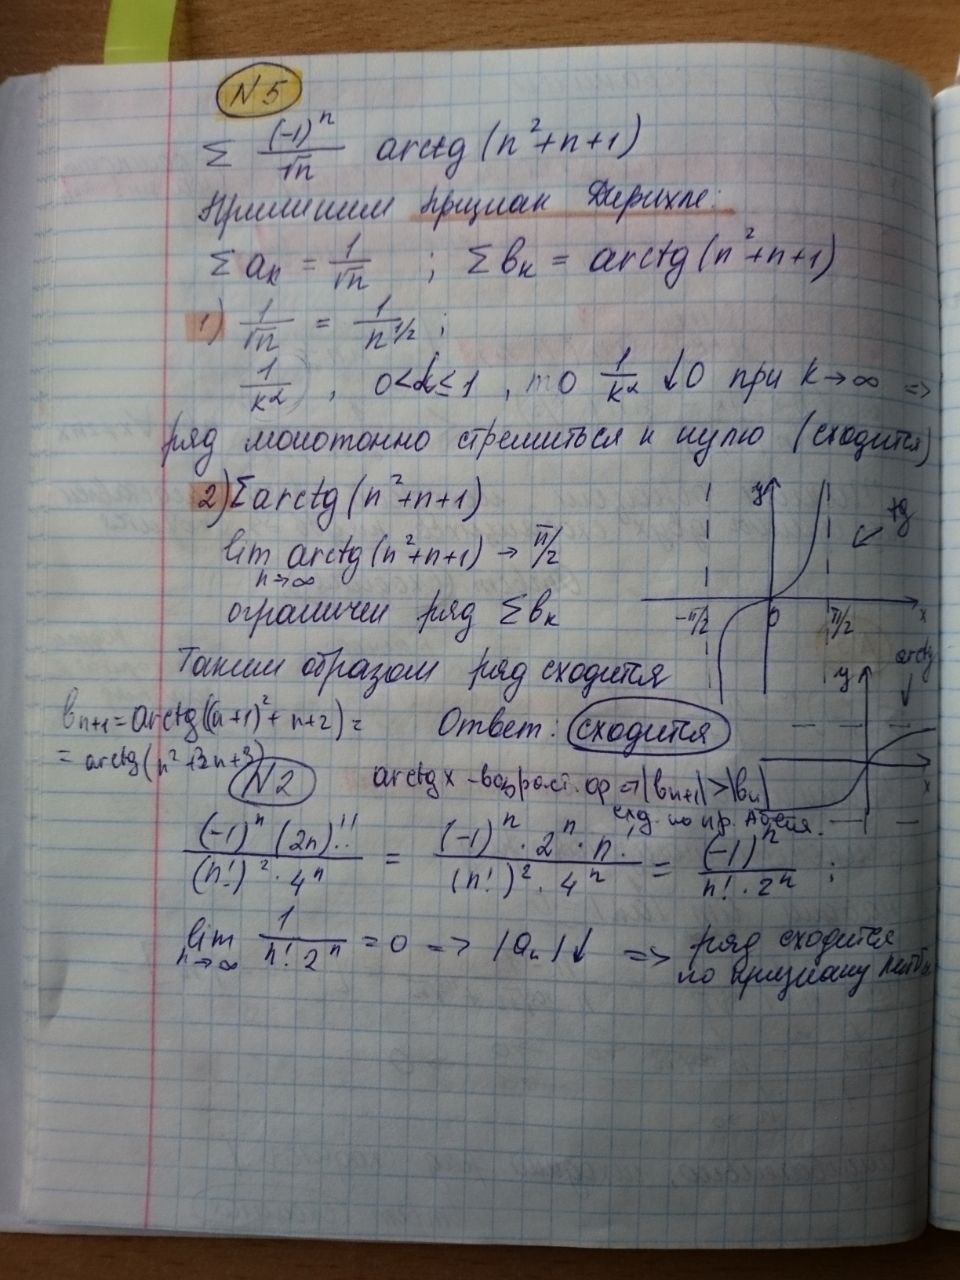 N5
Σ (-1)^n/√n arctg(n²+n+1)
Применим признак Дирихле:
Σ aₖ = 1/√n ; Σ вₖ = arctg(n²+n+1)
1) 1/√n = 1/n^(1/2) ;
1/k^α , 0<α≤1 , то 1/k^α ↓0 при k→∞ =>
ряд монотонно стремиться к нулю (сходится)
2) Σ arctg(n²+n+1)
lim n→∞ arctg(n²+n+1) → π/2
ограничен ряд Σ вₖ
y
tg
-π/2 0 π/2 x
Таким образом ряд сходится
arctg
y
x
вₙ₊₁ = arctg((n+1)²+n+2) =
= arctg(n²+3n+3)
Ответ: сходится
arctg x - возраст. ф => |вₙ₊₁| > |вₙ|
след. по пр. Абеля.
N2
(-1)^n (2n)!! / (n!)² · 4^n = (-1)^n · 2^n · n! / (n!)² · 4^n = (-1)^n / n! · 2^n ;
lim n→∞ 1/n! 2^n = 0 => |aₙ|↓ => ряд сходится
по признаку